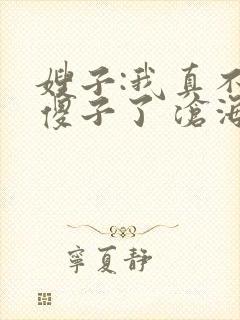 嫂子:我真不
傻子了 滄海
寧夏靜